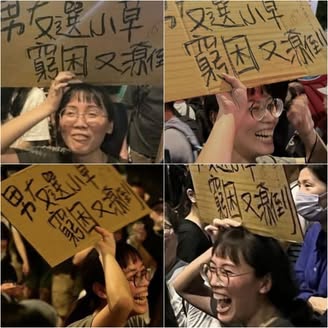 男友選小草
窮困又潦倒
友選小草
窮困又潦倒
男友選小草
窮困又潦倒
選小草
窮困又潦倒